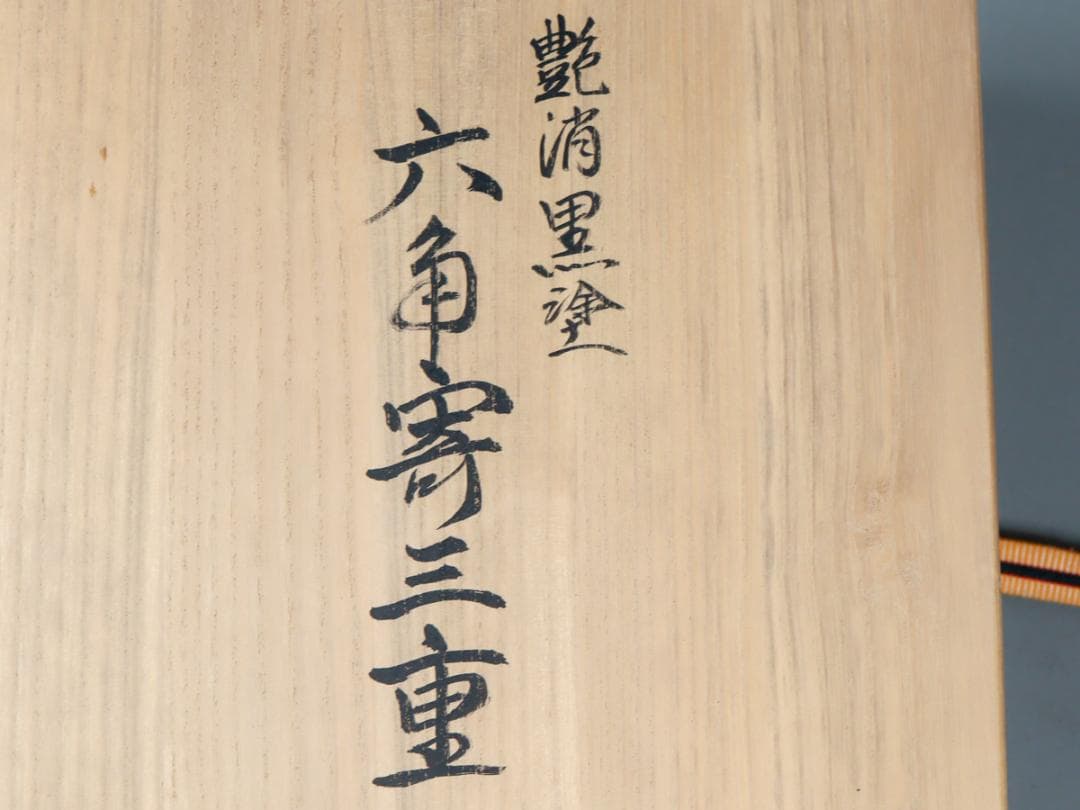 艶消黒塗
六角寄三重